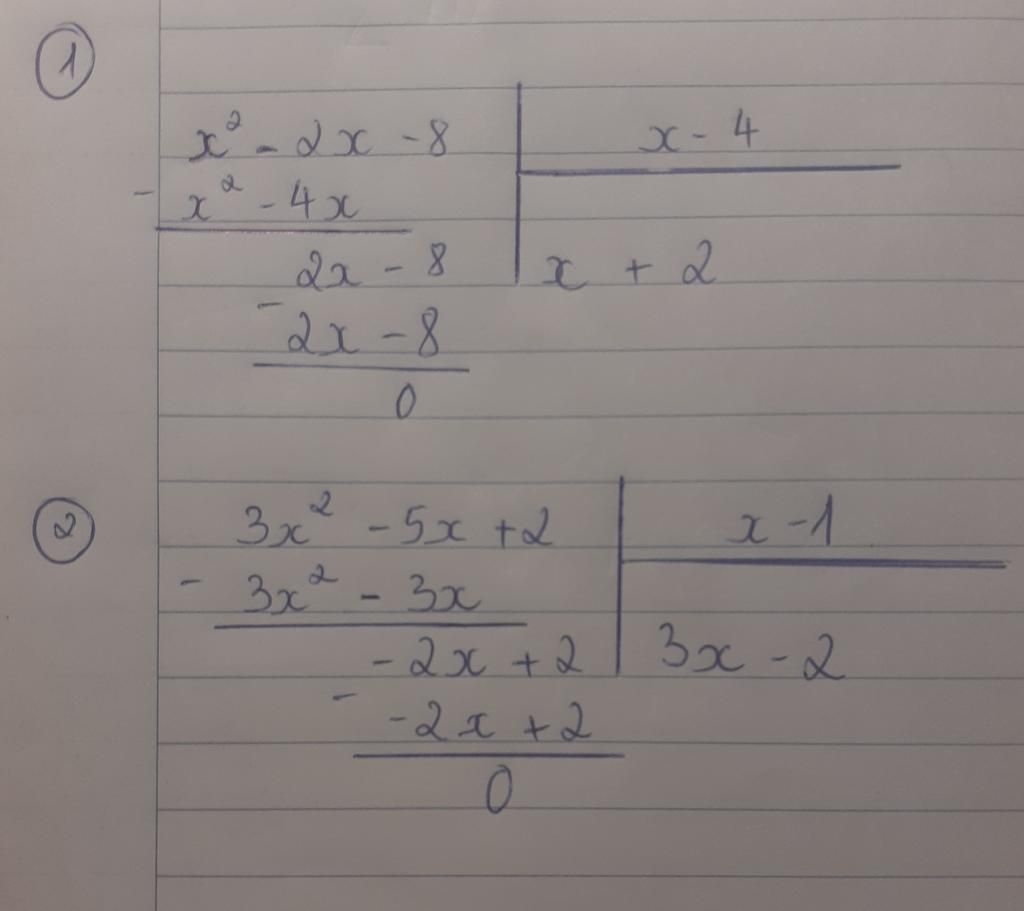 ①
x² - 2x - 8 | x - 4
- x² - 4x
2x - 8 | x + 2
- 2x - 8
0
②
3x² - 5x + 2 | x - 1
- 3x² - 3x
- 2x + 2 | 3x - 2
- -2x + 2
0